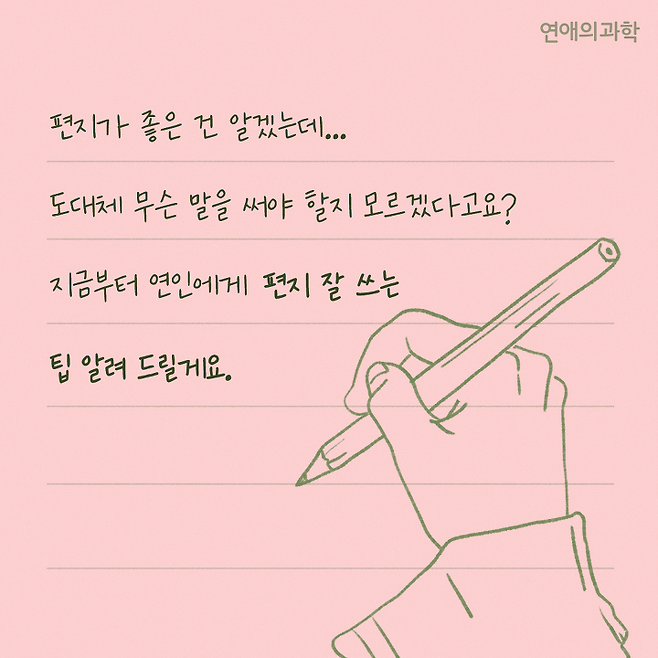 연애의과학
편지가 좋은 건 알겠는데...
도대체 무슨 말을 써야 할지 모르겠다고요?
지금부터 연인에게 편지 잘 쓰는
팁 알려 드릴게요.